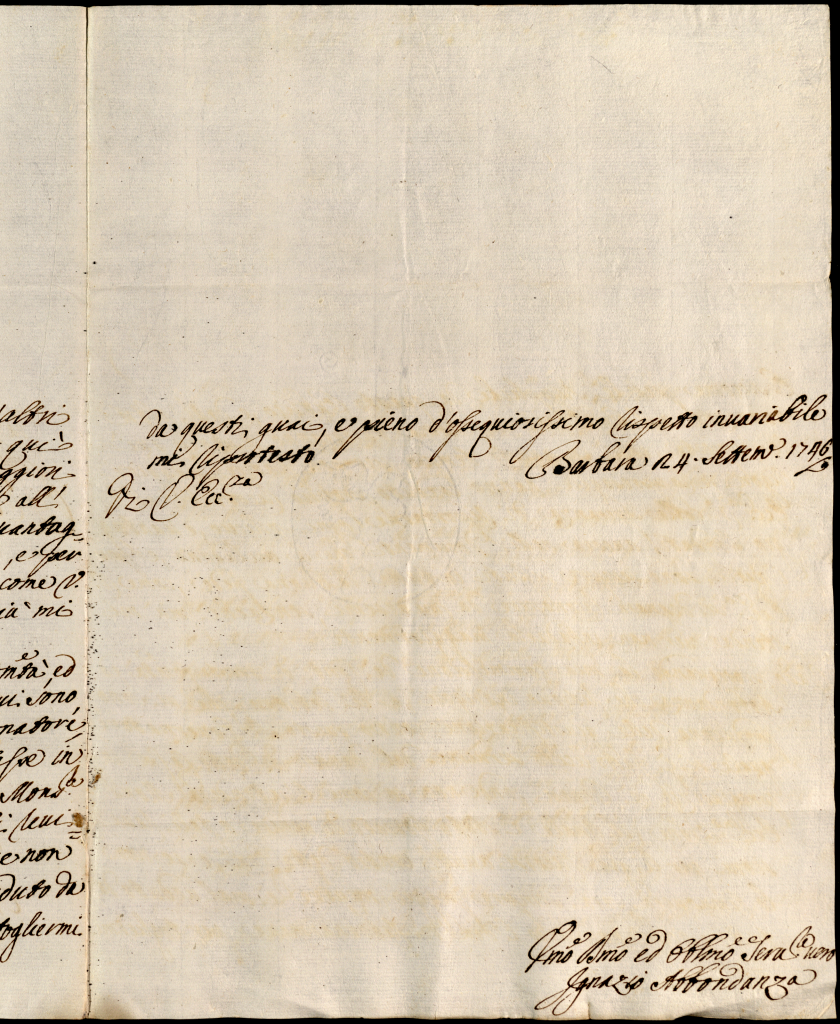 altri
qui
aggiori
all'
vantag=
, e per
come V.
ia mi
mta, ed
ui sono
natore,
in
Mons.r
levi=
e non
duto da
togliermi
da questi guai, e pieno d'ossequiosissimo rispetto invariabile
mi riprotesto.
Barbara 24. Settem. 1746
Di V. Ecc.za
Ummo Dmo ed Obbmo Ser.re vero
Ignazio Abbondanza